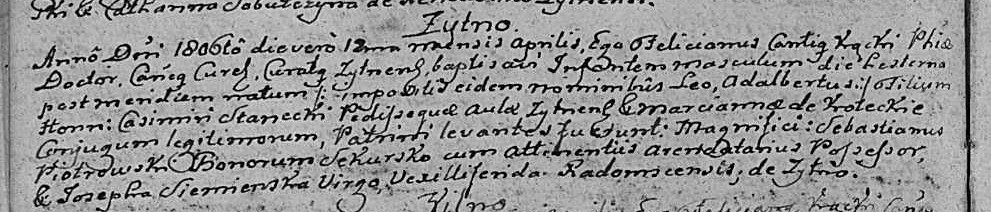 Phi & Catharina Sobutczyna de
Zytno.
Annô Dñi 1806tô die verò 12ma mensis Aprilis, Ego Felicianus Cantiq Kącki Phiæ
Doctor, Cañcg Cureł, Curatq Zytneñ, baptisavi Infantem masculum die hesterno
post meridiem natum /: impositis eidem nominibus Leo, Adalbertus :/ Filium
Honn: Casimiri Stanecki Pedisequæ Aulæ Zytneñ & Marciannæ de Koteckie
Conjugum legitimorum, Patrini levantes fuerunt: Magnifici: Sebastianus
Piotrowski Bonorum Sekursko cum attinentiis Arendatarius Possessor,
& Josepha Siemienska Virgo Vexilliferida Radomscensis, de Zytno.
Zytno